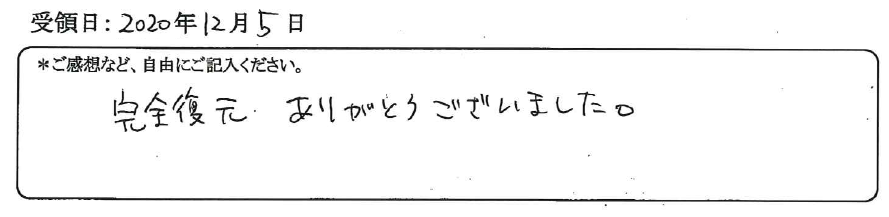 受領日: 2020年12月5日
＊ご感想など、自由にご記入ください。
完全復元. ありがとうございました。